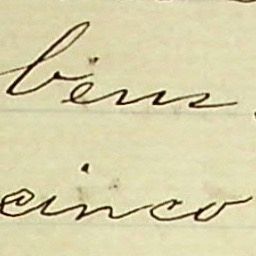 bens
cinco